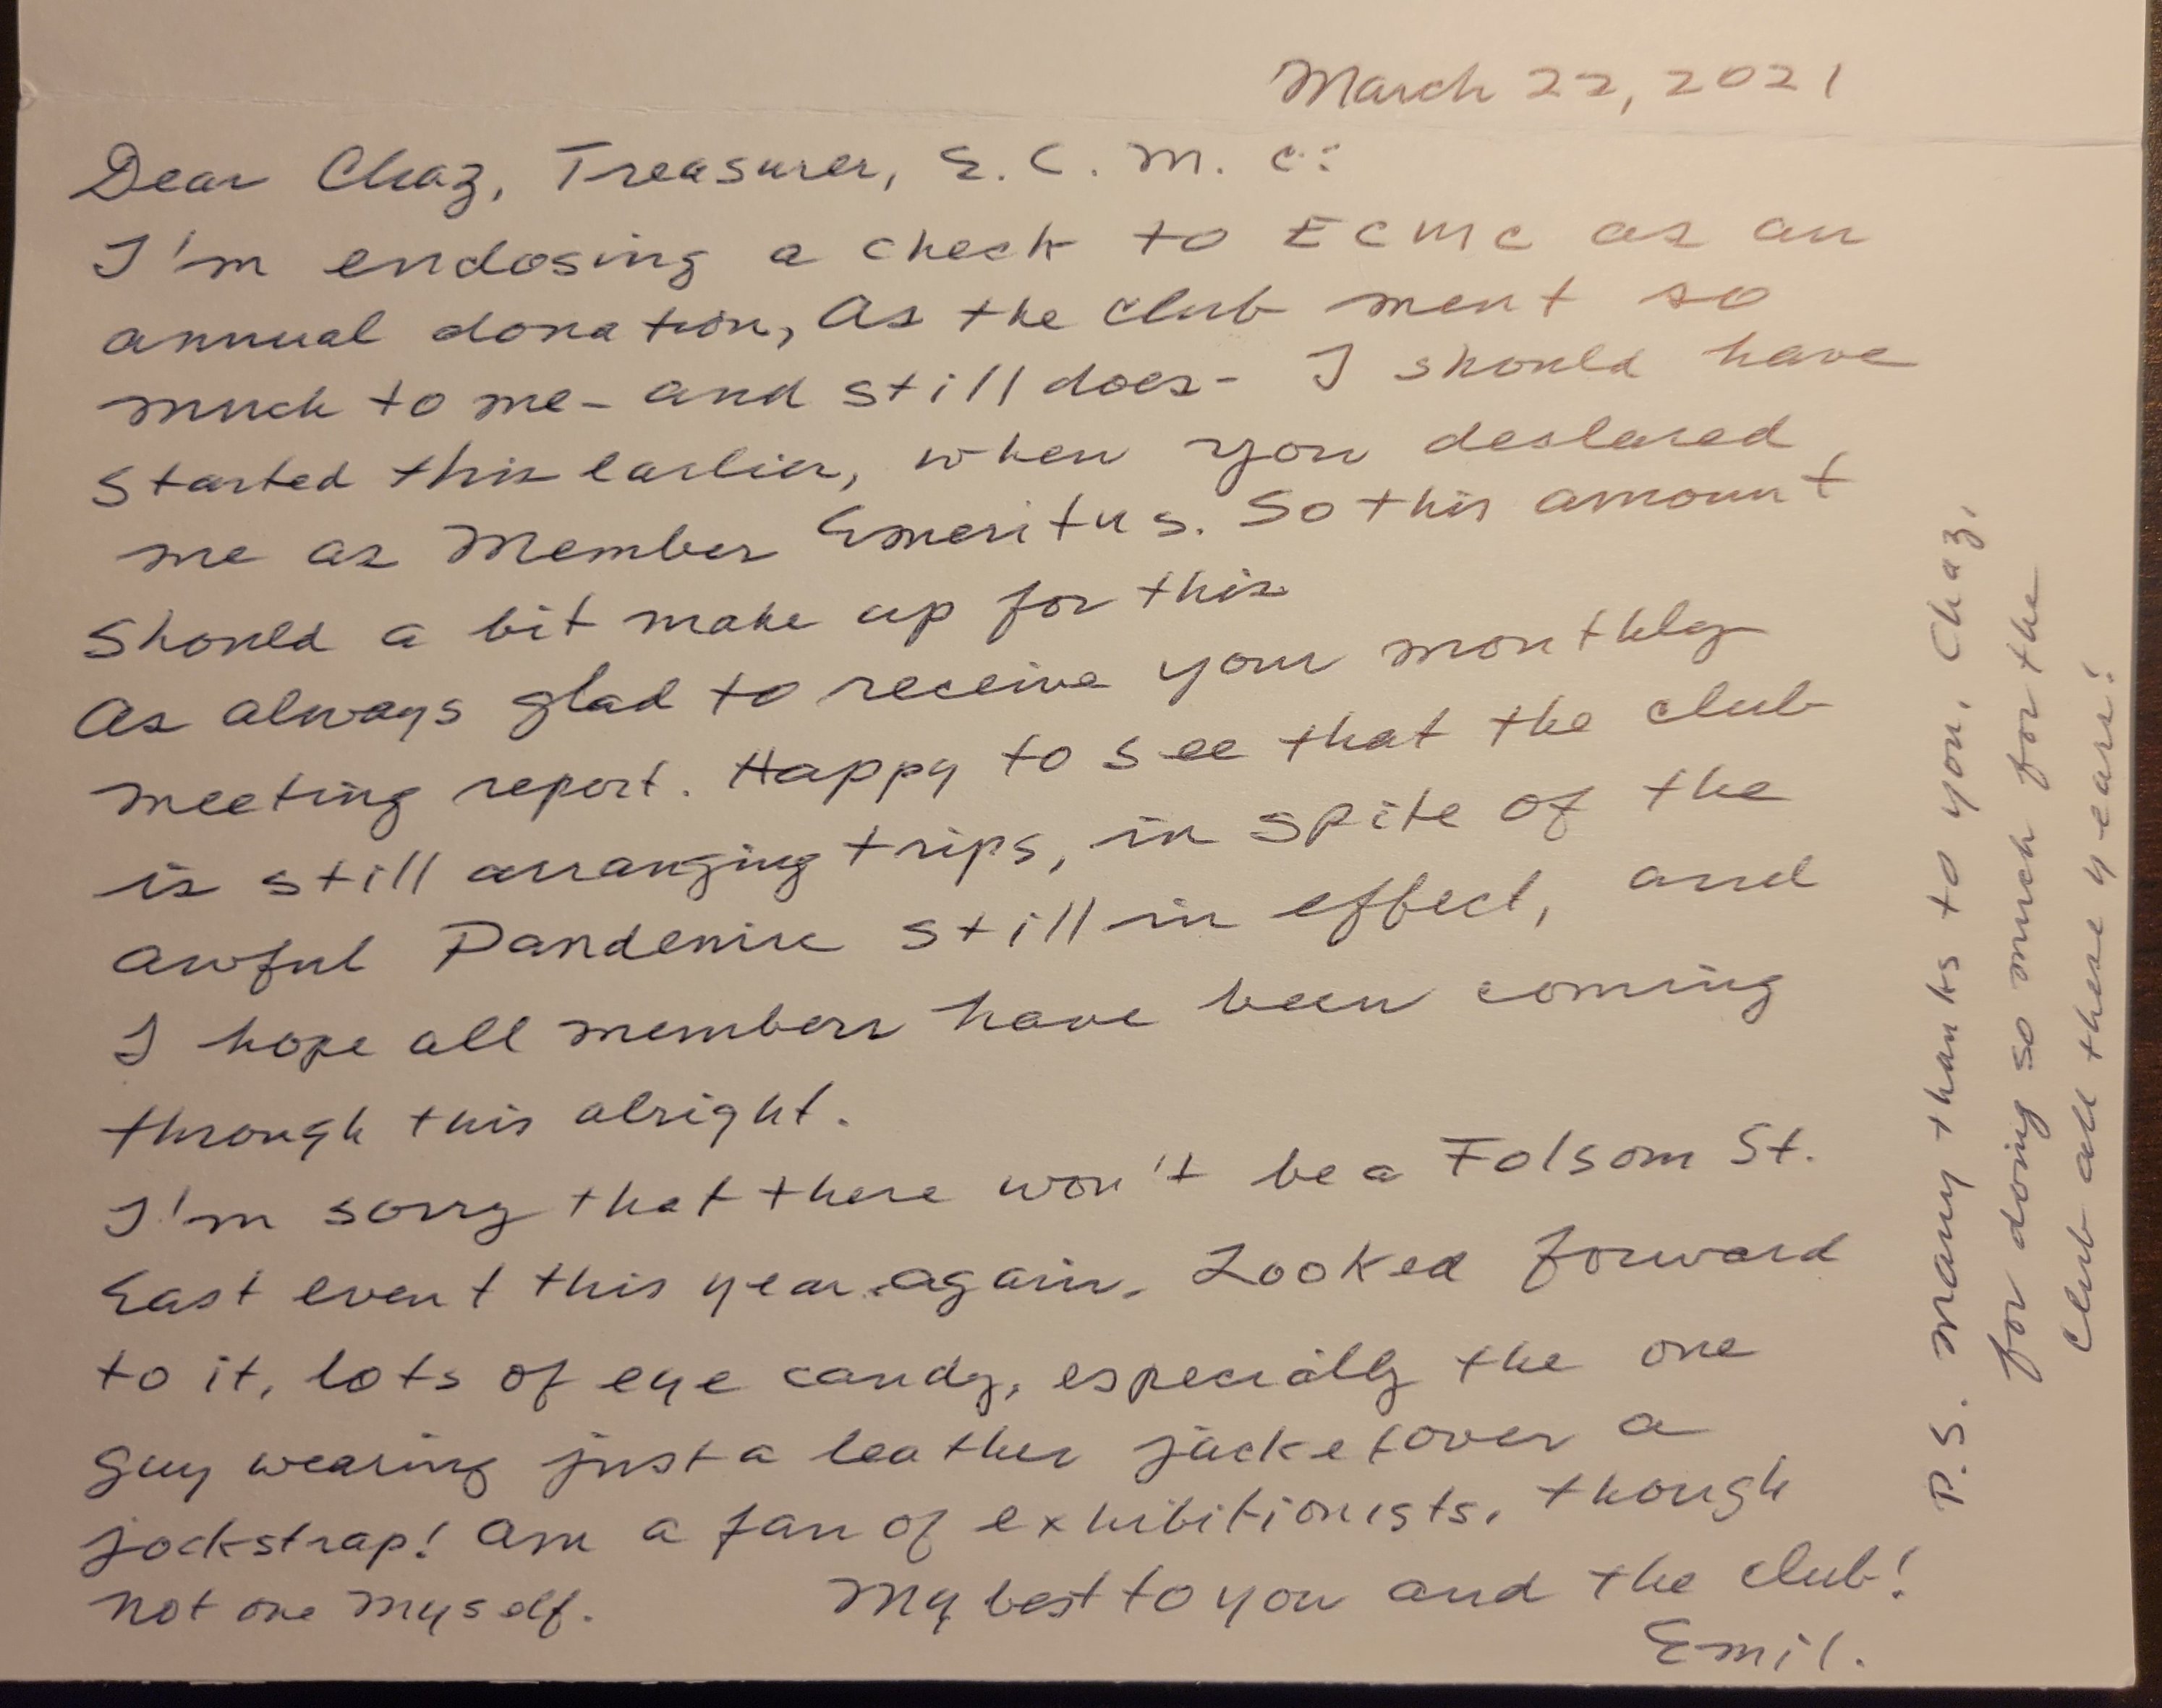 March 22, 2021
Dear Chaz, Treasurer, E. C. M. C:
I'm enclosing a check to ECMC as an
annual donation, As the club ment so
much to me - and still does - I should have
started this earlier, when you declared
me as Member Emeritus. So this amount
should a bit make up for this.
As always glad to receive your monthly
meeting report. Happy to see that the club
is still arranging trips, in spite of the
awful Pandemic still in effect, and
I hope all members have been coming
through this alright.
I'm sorry that there won't be a Folsom St.
East event this year again. Looked forward
to it, lots of eye candy, especially the one
guy wearing just a leather jacket over a
jockstrap! Am a fan of exhibitionists, though
not one myself. My best to you and the club!
Emil.
P.S. Many thanks to you, Chaz,
for doing so much for the
Club all these years!